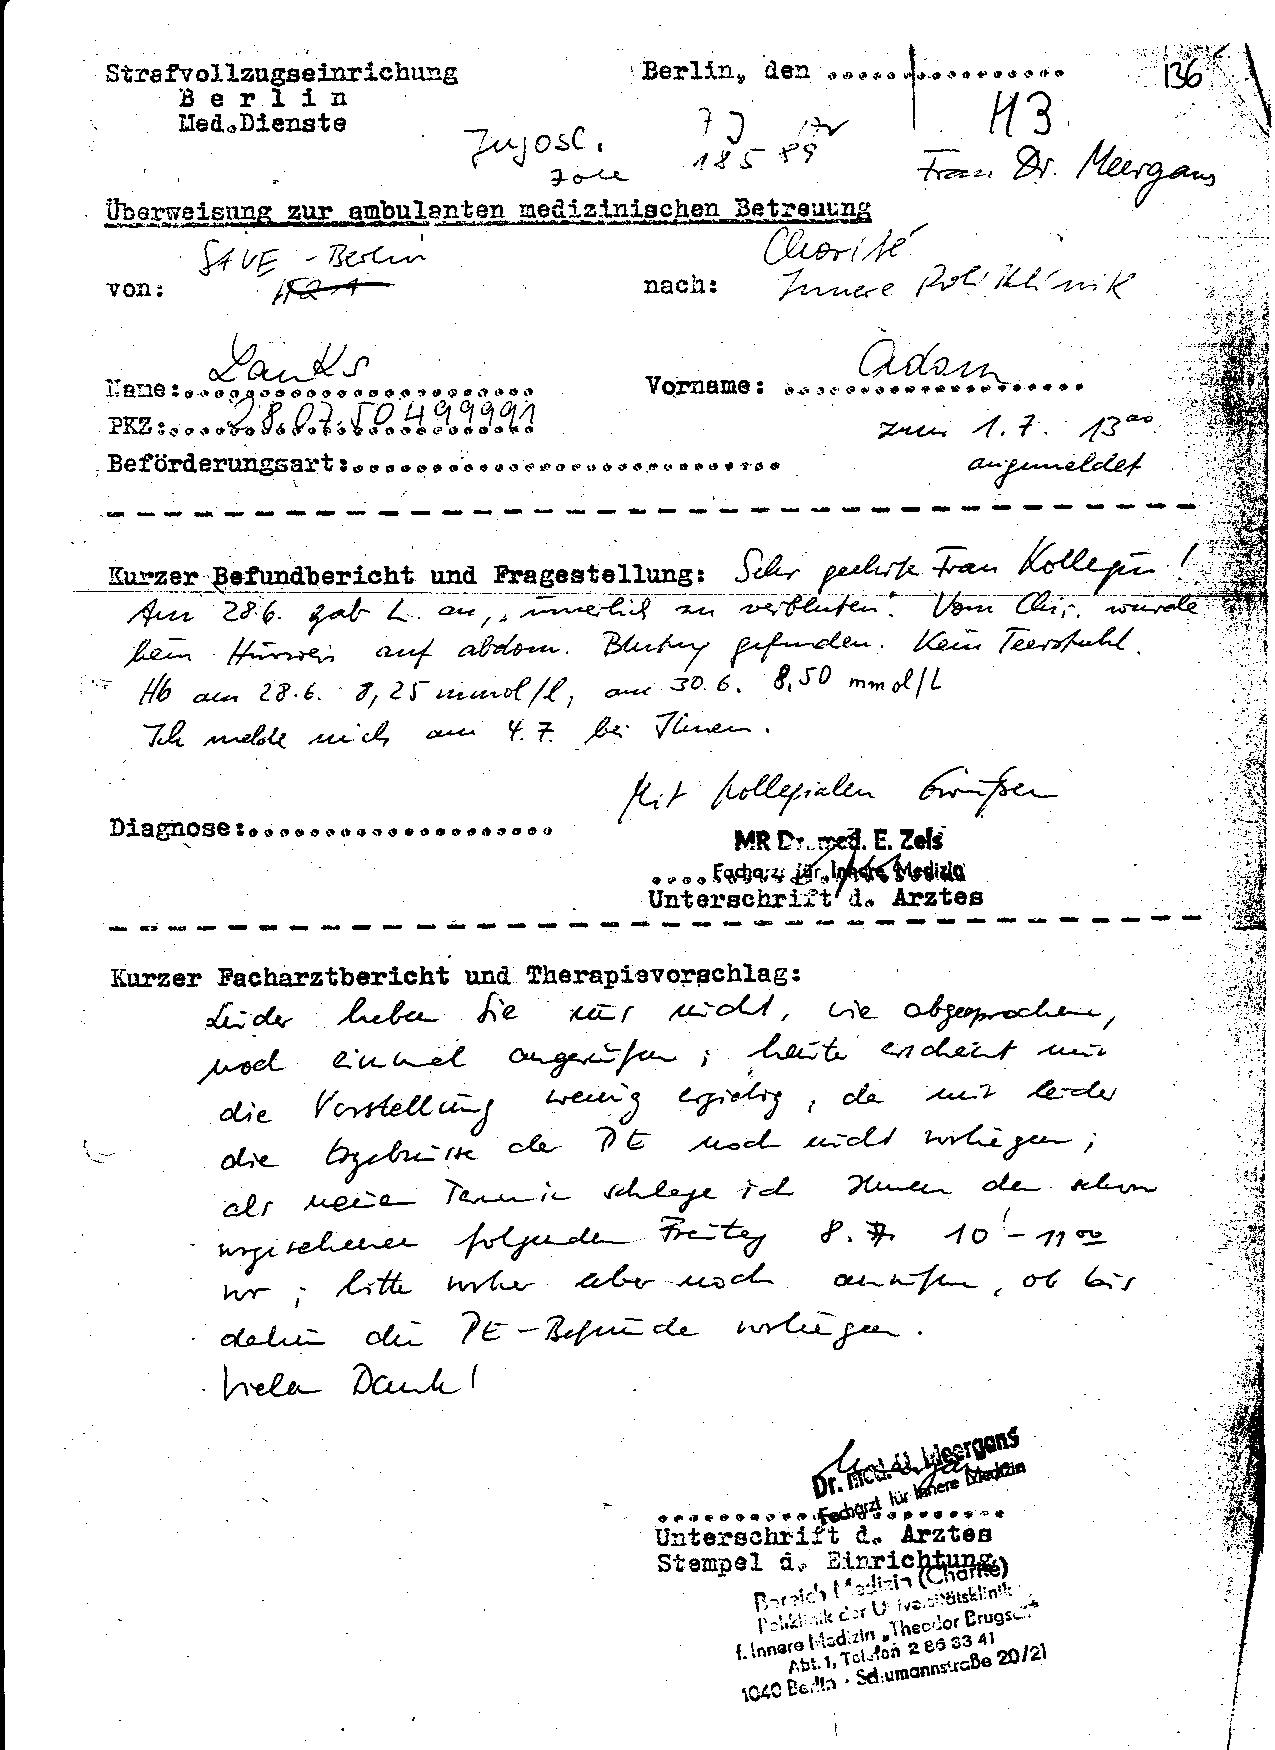 Strafvollzugseinrichung
B e r l i n
Med.Dienste
Berlin, den ....................
136
H3
Jugosl.
Frau Dr. Meergans
Überweisung zur ambulanten medizinischen Betreuung
StVE - Berlin
Charité
von:
nach: Innere Poliklinik
Name: Lanks
Vorname: Adam
PKZ: 280750499991
zum 1.7. 13⁰⁰
Beförderungsart:............................
angemeldet
Kurzer Befundbericht und Fragestellung: Sehr geehrte Frau Kollegin!
Am 28.6. gab L. an, „innerlich zu verbluten". Vom Chir. wurde
kein Hinweis auf abdom. Blutung gefunden. Kein Teerstuhl.
Hb am 28.6. 8,25 mmol/l, am 30.6. 8,50 mmol/l
Ich melde mich am 4.7. bei Ihnen.
Mit kollegialen Grüßen
Diagnose:....................
MR Dr. med. E. Zels
Facharzt für Innere Medizin
Unterschrift d. Arztes
Kurzer Facharztbericht und Therapievorschlag:
Leider haben Sie mir nicht, wie abgesprochen,
noch einmal angerufen; heute erscheint mir
die Vorstellung wenig ergiebig, da mir leider
die Ergebnisse der PE noch nicht vorliegen;
als neuen Termin schlage ich Ihnen den schon
vorgesehenen folgenden Freitag 8.7. 10 - 11⁰⁰
vor; bitte vorher aber noch anrufen, ob bis
dahin die PE-Befunde vorliegen.
Vielen Dank!
Dr. med. U. Meergans
Facharzt für Innere Medizin
Unterschrift d. Arztes
Stempel d. Einrichtung
Bereich Medizin (Charité)
Poliklinik der Universitätsklinik
f. Innere Medizin „Theodor Brugsch"
Abt. 1, Telefon 2 86 33 41
1040 Berlin · Schumannstraße 20/21